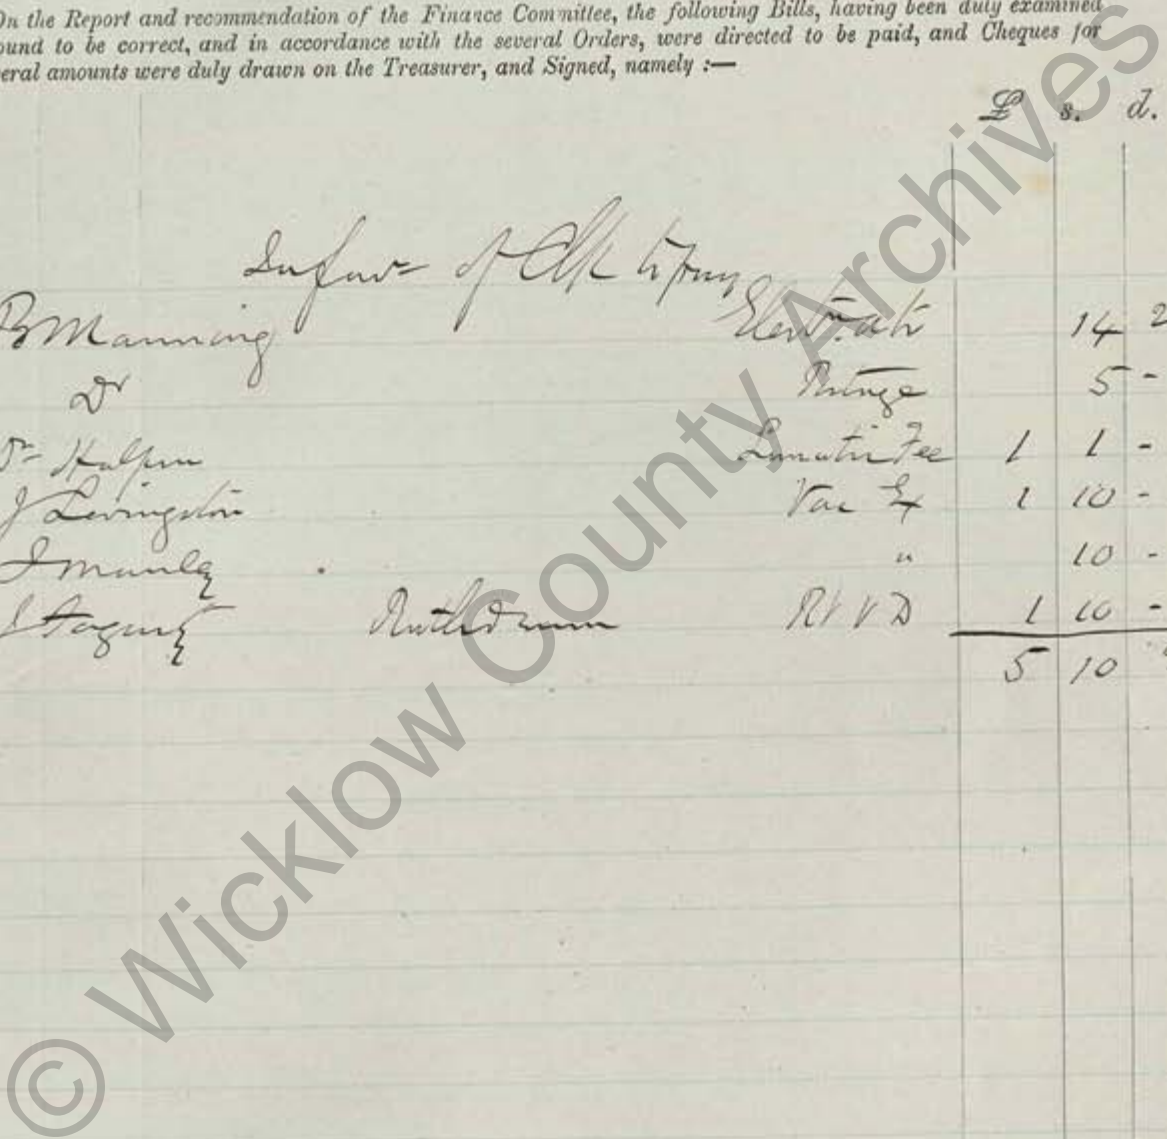 On the Report and recommendation of the Finance Committee, the following Bills, having been duly examined
ound to be correct, and in accordance with the several Orders, were directed to be paid, and Cheques for
eral amounts were duly drawn on the Treasurer, and Signed, namely :—
£ s. d.
In favr of Clk to pay
B Manning 14 2
Dr 5 -
Dr Halpin Lunatic Fee 1 1 -
J Livingston Vac Ex 1 10 -
J Manley " 10 -
Rathdrum RVD 1 10 -
5 10
© Wicklow County Archives